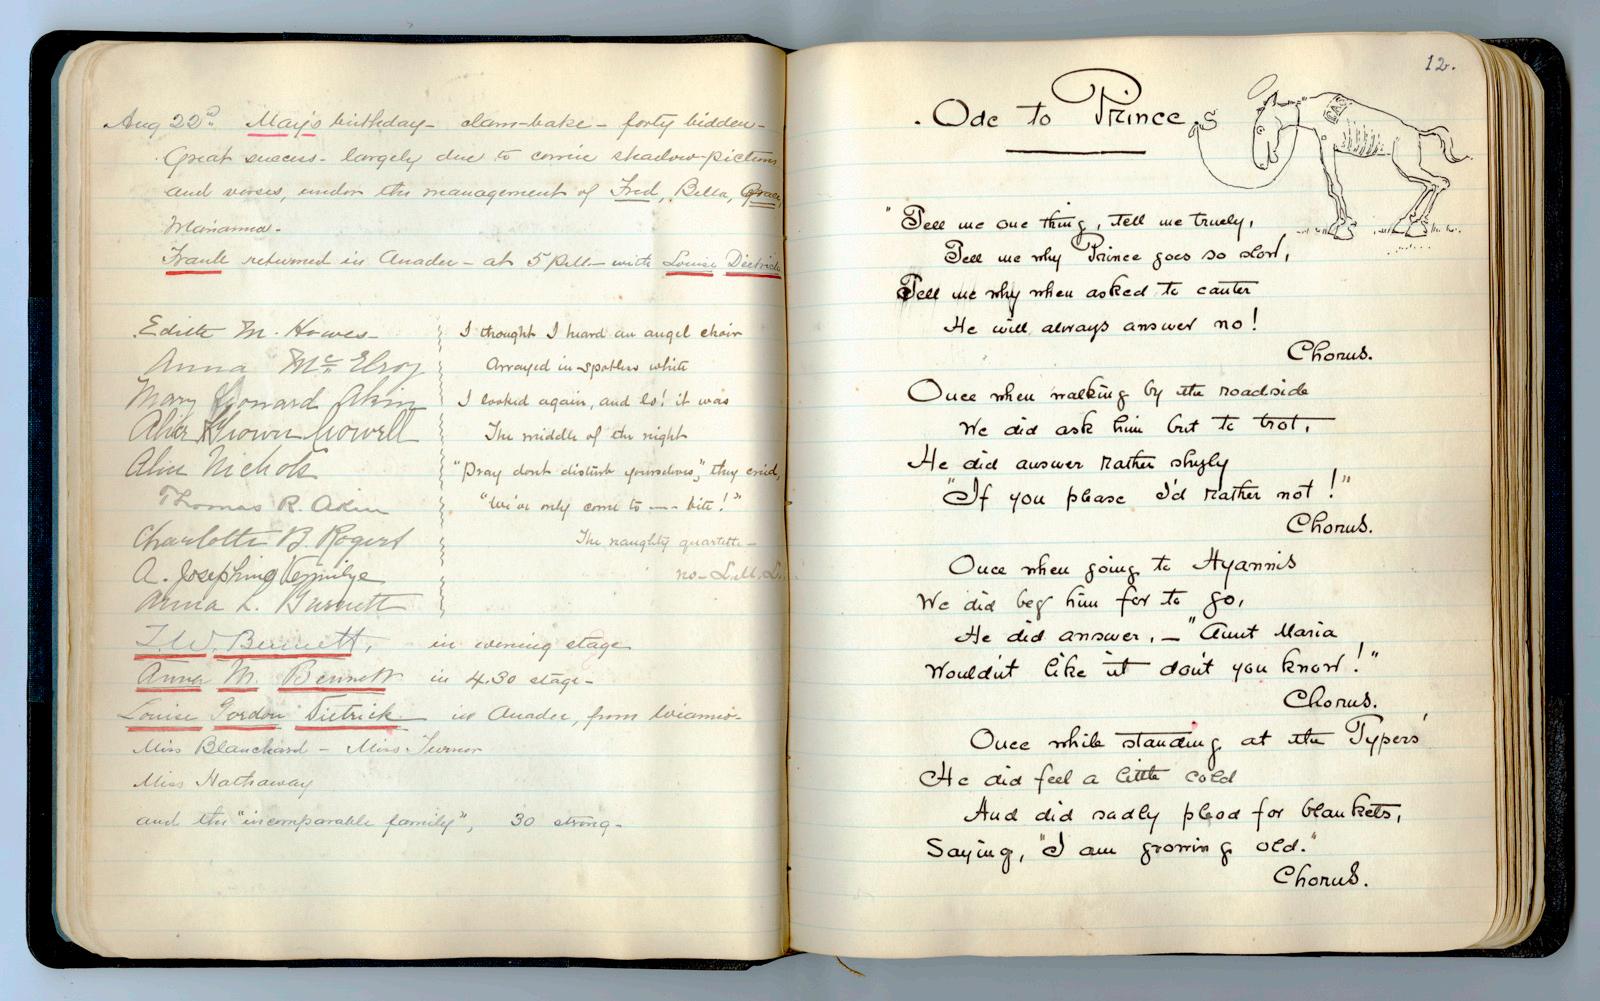 Aug 22nd. May's birthday - clam-bake - forty bidden -
Great success - largely due to comic shadow-pictures
and verses, under the management of Fred, Bella, Grace,
Marianna -
Frank returned in Anader - at 5 P.M. - with Louise Dietrick
Edith M. Howes -
Anna McElroy
Mary Leonard Akin
Alice Brown Crowell
Alice Nichols
Thomas R. Akin
Charlotte B. Rogers
A. Josephine Vermilye
Anna L. Burnett
I thought I heard an angel choir
Arrayed in spotless white
I looked again, and lo! it was
The middle of the night
"Pray dont disturb yourselves", they cried,
"We've only come to --- bite!"
The naughty quartette -
no -
T. W. Bennett, in evening stage
Anna M. Bennett in 4.30 stage -
Louise Gordon Dietrick in Anader, from Wianno -
Miss Blanchard - Miss Turner
Miss Hathaway
and the "incomparable family", 30 strong -
12.
Ode to Prince
GAS
"Tell me one thing, tell me truely,
Tell me why Prince goes so slow,
Tell me why when asked to canter
He will always answer no!
Chorus.
Once when walking by the roadside
We did ask him but to trot,
He did answer rather shyly
"If you please I'd rather not!"
Chorus.
Once when going to Hyannis
We did beg him for to go,
He did answer, - "Aunt Maria
Wouldn't like it don't you know!"
Chorus.
Once while standing at the Typers'
He did feel a little cold
And did sadly plead for blankets,
Saying, "I am growing old."
Chorus.